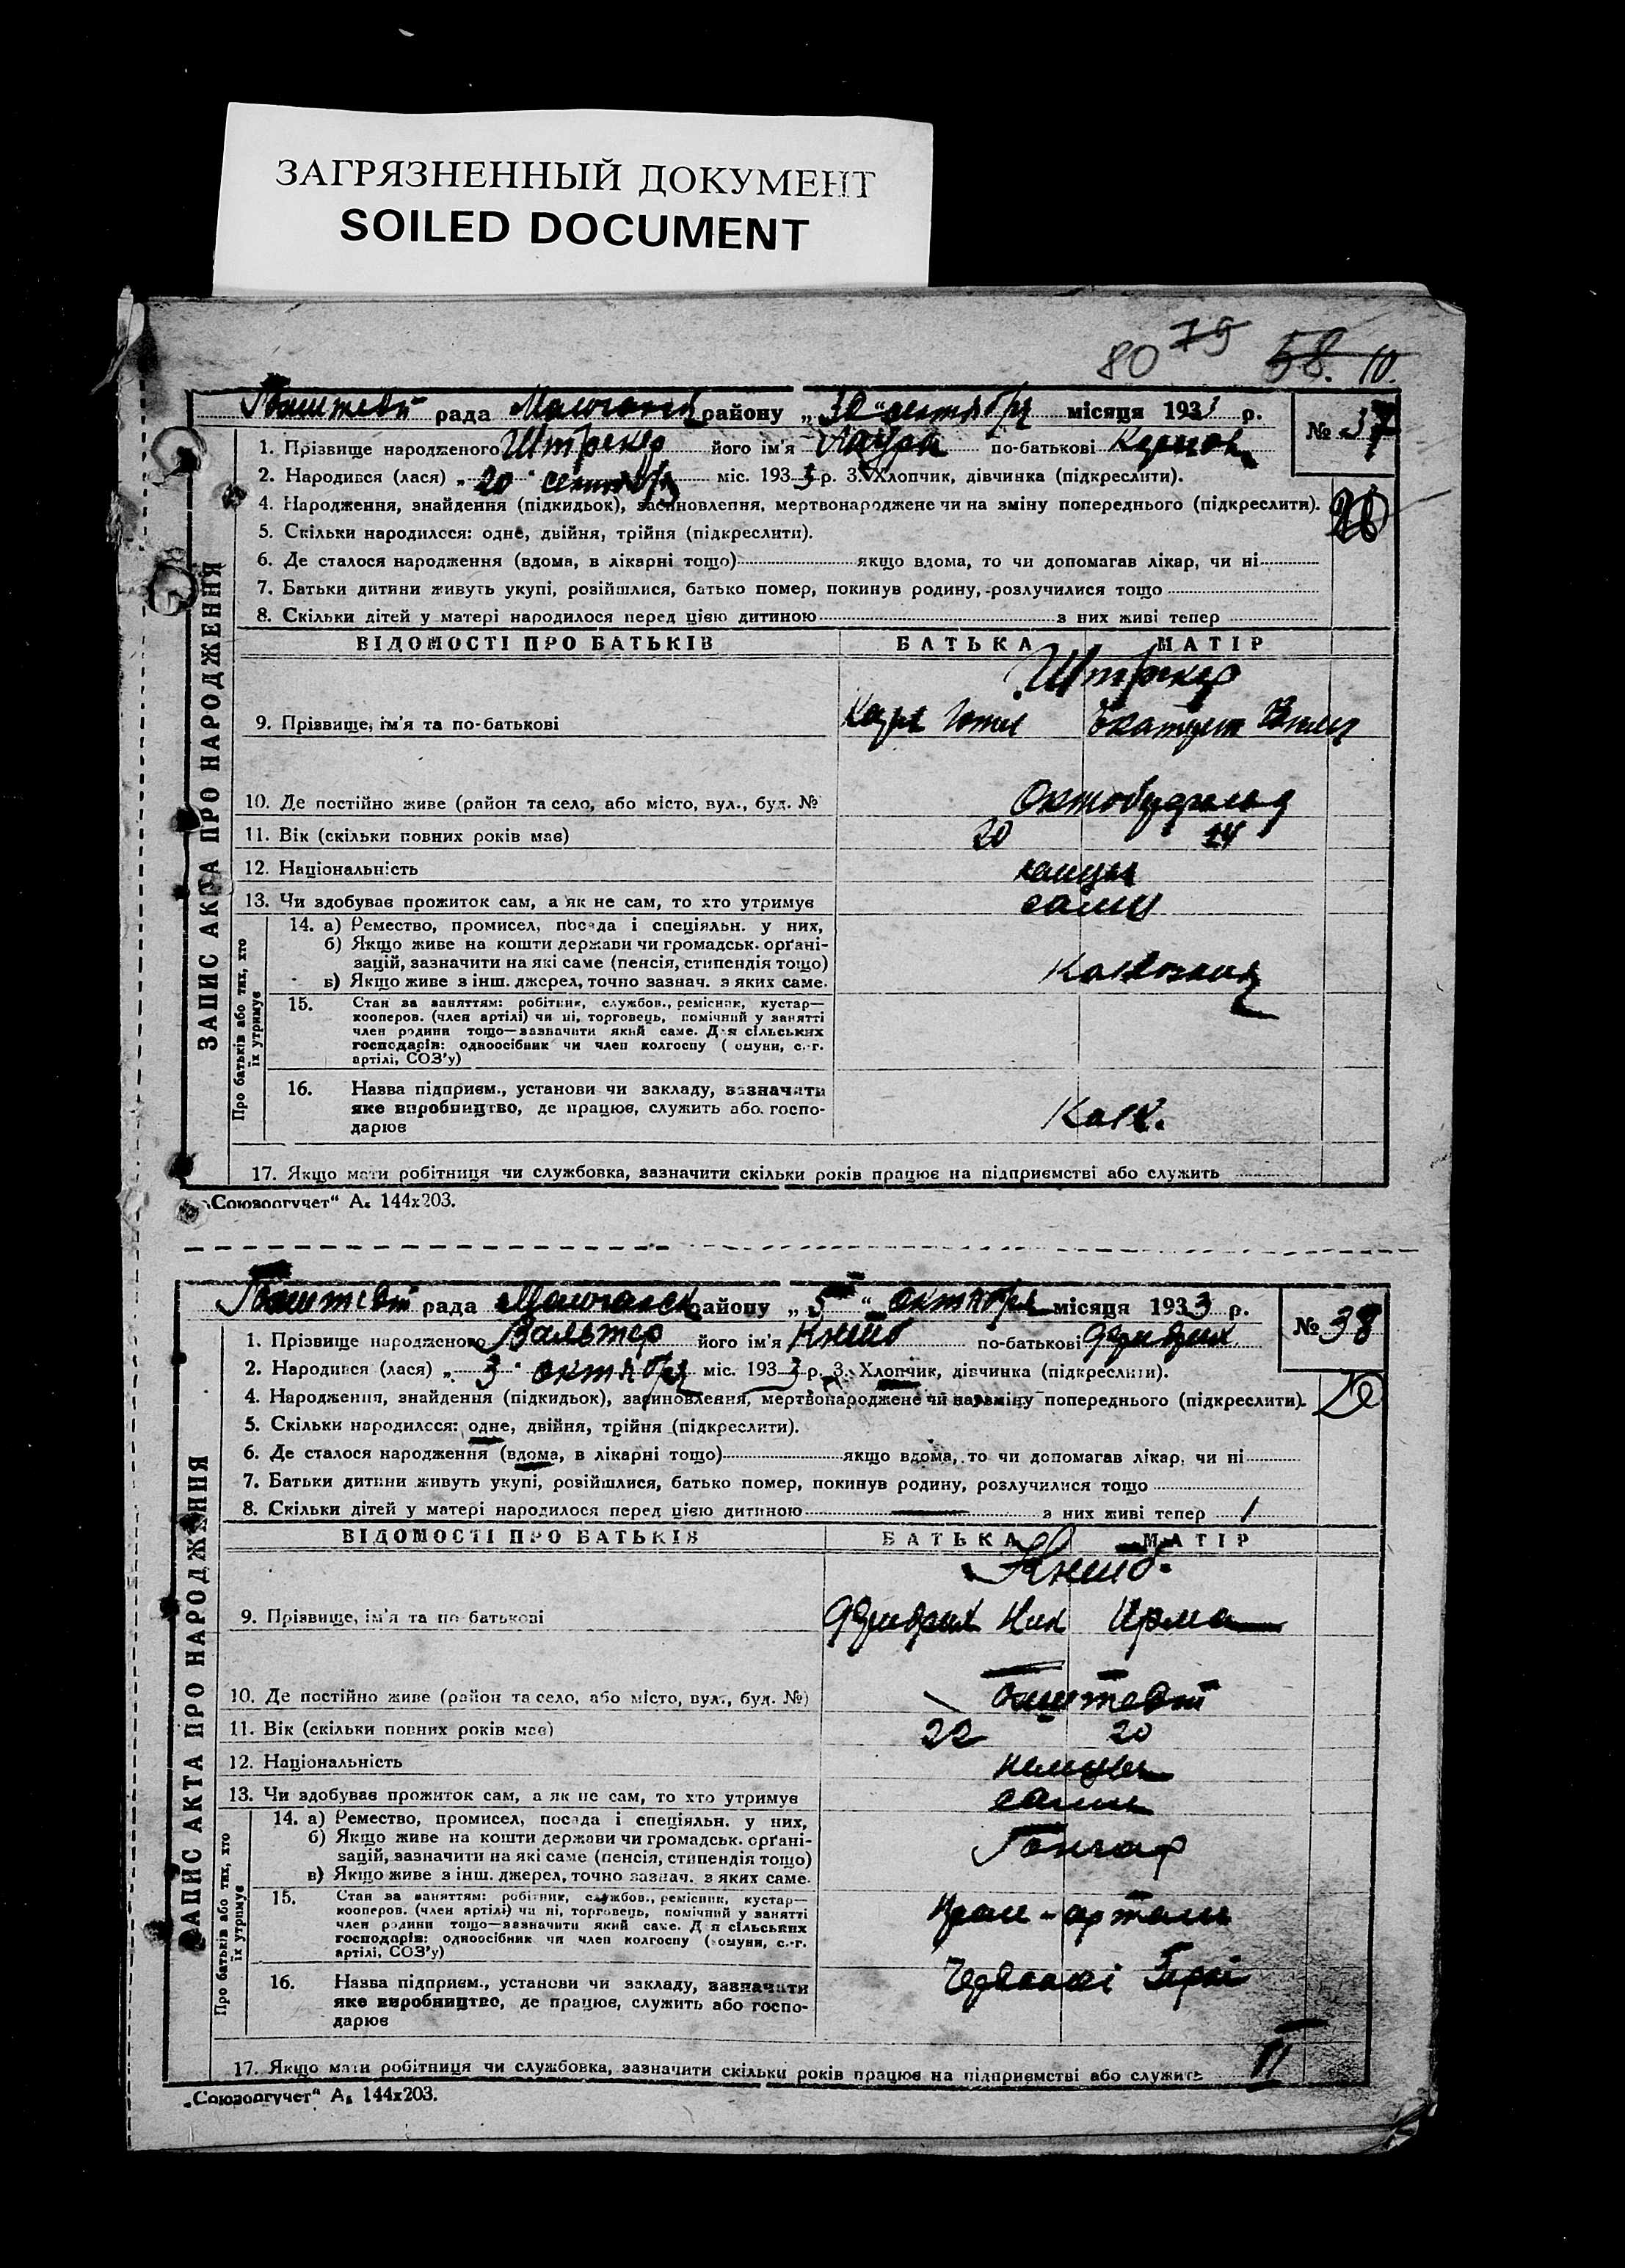 ЗАГРЯЗНЕННЫЙ ДОКУМЕНТ
SOILED DOCUMENT
80 79 58. 10.
рада району „30“ сентября місяця 1933 р.
№ 37
1. Прізвище народженого Штрекер його ім'я Лаура по-батькові
2. Народився (лася) „20“ сентября міс. 1933 р. 3. Хлопчик, дівчинка (підкреслити).
4. Народження, знайдення (підкидьок), засиновлення, мертвонароджене чи на зміну попереднього (підкреслити).
5. Скільки народилося: одне, двійня, трійня (підкреслити).
6. Де сталося народження (вдома, в лікарні тощо) якщо вдома, то чи допомагав лікар, чи ні
7. Батьки дитини живуть укупі, розійшлися, батько помер, покинув родину, розлучилися тощо
8. Скільки дітей у матері народилося перед цією дитиною з них живі тепер
ЗАПИС АКТА ПРО НАРОДЖЕННЯ
ВІДОМОСТІ ПРО БАТЬКІВ БАТЬКА МАТІР
Штрекер
9. Прізвище, ім'я та по-батькові
10. Де постійно живе (район та село, або місто, вул., буд. №
11. Вік (скільки повних років має) 20 24
12. Національність немцы
13. Чи здобуває прожиток сам, а як не сам, то хто утримує сами
Про батьків або тих, хто їх утримує
14. а) Ремество, промисел, посада і спеціяльн. у них,
б) Якщо живе на кошти держави чи громадськ. орґані-
зацій, зазначити на які саме (пенсія, стипендія тощо)
в) Якщо живе з інш. джерел, точно зазнач. з яких саме.
15. Стан за заняттям: робітник, службов., ремісник, кустар—
кооперов. (член артілі) чи ні, торговець, помічний у занятті
член родини тощо—зазначити який саме. Для сільських
господарів: одноосібник чи член колгоспу ( омуни, с.-г.
артілі, СОЗ'у)
16. Назва підприєм., установи чи закладу, зазначити
яке виробництво, де працює, служить або госпо-
дарює
Колх.
17. Якщо мати робітниця чи службовка, зазначити скільки років працює на підприємстві або служить
„Союзоргучет“ А₅ 144х203.
рада району „5“ октября місяця 1933 р.
№ 38
1. Прізвище народженого Вальтер його ім'я Кнейб по-батькові
2. Народився (лася) „3“ октября міс. 1933 р. 3. Хлопчик, дівчинка (підкреслити).
4. Народження, знайдення (підкидьок), засиновлення, мертвонароджене чи на зміну попереднього (підкреслити).
5. Скільки народилося: одне, двійня, трійня (підкреслити).
6. Де сталося народження (вдома, в лікарні тощо) якщо вдома, то чи допомагав лікар, чи ні
7. Батьки дитини живуть укупі, розійшлися, батько помер, покинув родину, розлучилися тощо
8. Скільки дітей у матері народилося перед цією дитиною з них живі тепер 1
ЗАПИС АКТА ПРО НАРОДЖЕННЯ
ВІДОМОСТІ ПРО БАТЬКІВ БАТЬКА МАТІР
Кнейб
9. Прізвище, ім'я та по батькові Ирма
10. Де постійно живе (район та село, або місто, вул., буд. №)
11. Вік (скільки повних років має) 22 20
12. Національність немцы
13. Чи здобуває прожиток сам, а як не сам, то хто утримує сами
Про батьків або тих, хто їх утримує
14. а) Ремество, промисел, посада і спеціяльн. у них,
б) Якщо живе на кошти держави чи громадськ. орґані-
зацій, зазначити на які саме (пенсія, стипендія тощо)
в) Якщо живе з інш. джерел, точно зазнач. з яких саме.
Гончар
15. Стан за заняттям: робітник, службов., ремісник, кустар—
кооперов. (член артілі) чи ні, торговець, помічний у занятті
член родини тощо—зазначити який саме. Для сільських
господарів: одноосібник чи член колгоспу ( омуни, с.-г.
артілі, СОЗ'у)
16. Назва підприєм., установи чи закладу, зазначити
яке виробництво, де працює, служить або госпо-
дарює
17. Якщо мати робітниця чи службовка, зазначити скільки років працює на підприємстві або служить II
„Союзоргучет“ А₅ 144х203.